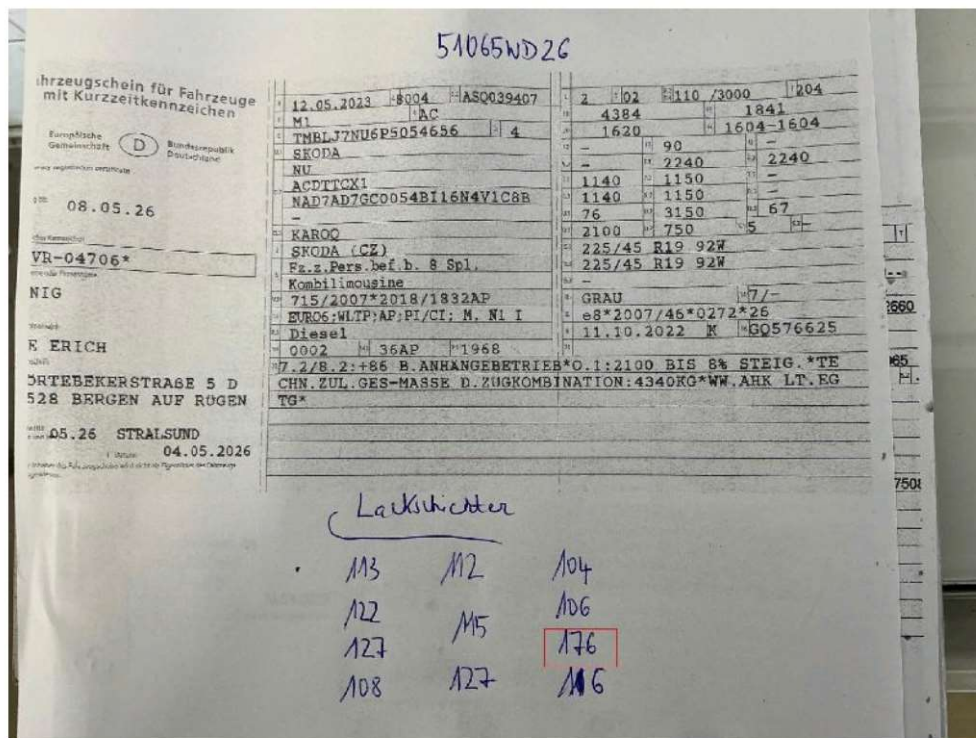 51065WD26
hrzeugschein für Fahrzeuge
mit Kurzzeitkennzeichen
Europäische Gemeinschaft
D
Bundesrepublik Deutschland
08.05.26
VR-04706*
NIG
E ERICH
ÖRTEBEKERSTRAßE 5 D
528 BERGEN AUF RÜGEN
05.26 STRALSUND
04.05.2026
12.05.2023 8004 ASQ039407
M1 AC
TMBLJ7NU6P5054656 4
SKODA
NU
ACDTTCX1
NAD7AD7GC0054BI16N4V1C8B
–
KAROQ
SKODA (CZ)
Fz.z.Pers.bef.b. 8 Spl.
Kombilimousine
715/2007*2018/1832AP
EURO6;WLTP;AP;PI/CI; M, N1 I
Diesel
0002 36AP 1968
2 02 110 /3000 204
4384 1841
1620 1604-1604
– 90 –
– 2240 2240
1140 1150 –
1140 1150 –
76 3150 67
2100 750 5 –
225/45 R19 92W
225/45 R19 92W
–
GRAU 7/-
e8*2007/46*0272*26
11.10.2022 K GQ576625
7.2/8.2:+86 B.ANHÄNGEBETRIEB*O.1:2100 BIS 8% STEIG.*TE
CHN.ZUL.GES-MASSE D.ZUGKOMBINATION:4340KG*WW.AHK LT.EG
TG*
Lackschichten
113 112 104
122 115 106
127 176
108 127 116
2660
065
H.
7508